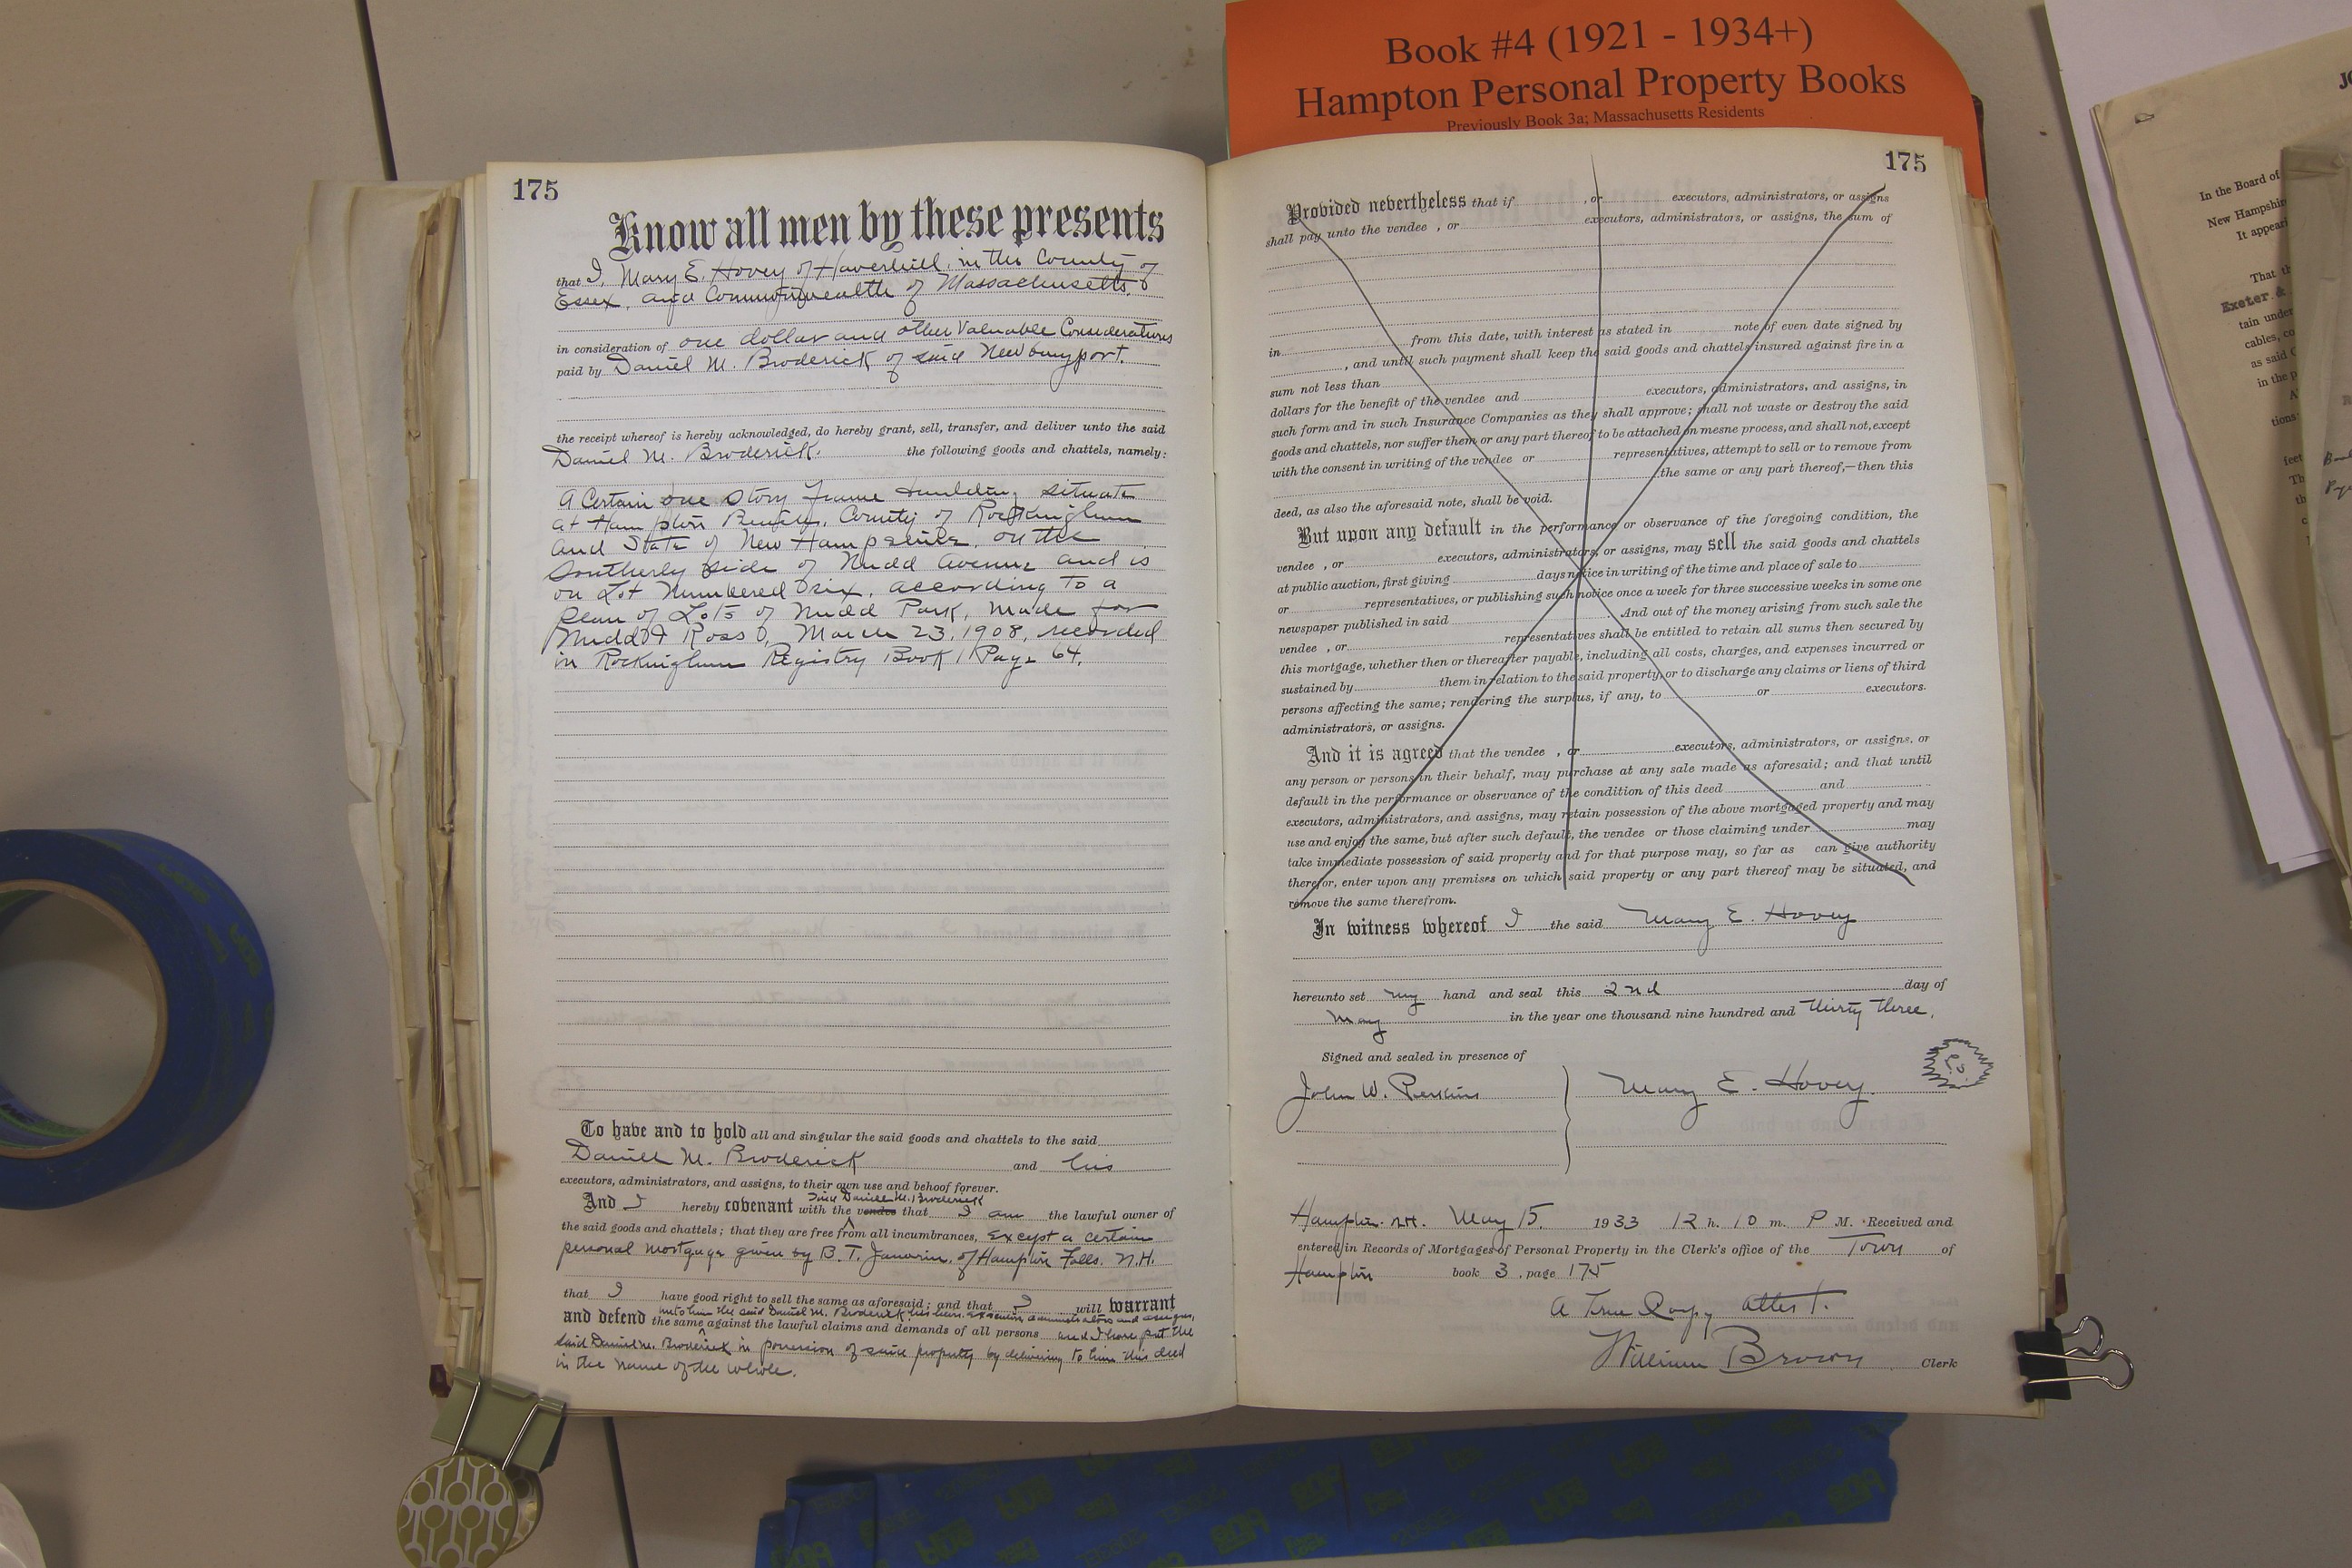 Book #4 (1921 - 1934+)
Hampton Personal Property Books
Previously Book 3a; Massachusetts Residents
175
Know all men by these presents
that I, Mary E. Hovey of Haverhill, in the County of
Essex, and Commonwealth of Massachusetts,
in consideration of one dollar and other Valuable Considerations
paid by Daniel M. Broderick of said Newburyport.
the receipt whereof is hereby acknowledged, do hereby grant, sell, transfer, and deliver unto the said
Daniel M. Broderick. the following goods and chattels, namely:
A Certain one Story frame building situate
at Hampton Beach, County of Rockingham
and State of New Hampshire, on the
Southerly side of Nudd Avenue and is
on Lot Numbered Six, according to a
plan of Lots of Nudd Park, made for
Nudd & Ross, March 23, 1908, recorded
in Rockingham Registry Book 1 Page 64.
To have and to hold all and singular the said goods and chattels to the said
Daniel M. Broderick and his
executors, administrators, and assigns, to their own use and behoof forever.
said Daniel M. Broderick
And I hereby covenant with the vendee that I am the lawful owner of
the said goods and chattels; that they are free from all incumbrances, Except a certain
personal mortgage given by B. T. Janvrin, of Hampton Falls. N.H.
that I have good right to sell the same as aforesaid; and that I will warrant
unto him the said Daniel M. Broderick, his heirs, executors, administrators and assigns,
and defend the same against the lawful claims and demands of all persons and I have put the
said Daniel M. Broderick in possession of said property by delivering to him this deed
in the name of the whole.
175
Provided nevertheless that if , or executors, administrators, or assigns
shall pay unto the vendee , or executors, administrators, or assigns, the sum of
in from this date, with interest as stated in note of even date signed by
, and until such payment shall keep the said goods and chattels insured against fire in a
sum not less than
dollars for the benefit of the vendee and executors, administrators, and assigns, in
such form and in such Insurance Companies as they shall approve; shall not waste or destroy the said
goods and chattels, nor suffer them or any part thereof to be attached on mesne process, and shall not, except
with the consent in writing of the vendee or representatives, attempt to sell or to remove from
the same or any part thereof,—then this
deed, as also the aforesaid note, shall be void.
But upon any default in the performance or observance of the foregoing condition, the
vendee , or executors, administrators, or assigns, may sell the said goods and chattels
at public auction, first giving days notice in writing of the time and place of sale to
or representatives, or publishing such notice once a week for three successive weeks in some one
newspaper published in said . And out of the money arising from such sale the
vendee , or representatives shall be entitled to retain all sums then secured by
this mortgage, whether then or thereafter payable, including all costs, charges, and expenses incurred or
sustained by them in relation to the said property, or to discharge any claims or liens of third
persons affecting the same; rendering the surplus, if any, to or executors.
administrators, or assigns.
And it is agreed that the vendee , or executors, administrators, or assigns, or
any person or persons in their behalf, may purchase at any sale made as aforesaid; and that until
default in the performance or observance of the condition of this deed and
executors, administrators, and assigns, may retain possession of the above mortgaged property and may
use and enjoy the same, but after such default, the vendee or those claiming under may
take immediate possession of said property and for that purpose may, so far as can give authority
therefor, enter upon any premises on which said property or any part thereof may be situated, and
remove the same therefrom.
In witness whereof I the said Mary E. Hovey
hereunto set my hand and seal this 2nd day of
May in the year one thousand nine hundred and thirty three.
Signed and sealed in presence of
John W. Perkins
Mary E. Hovey.
Hampton N.H. May 15. 1933 12 h. 10 m. P M. Received and
entered in Records of Mortgages of Personal Property in the Clerk's office of the Town of
Hampton book 3 , page 175
A True Copy attest.
William Brown Clerk
In the Board of
New Hampshire
It appear
Exeter &
tain under
cables, co
as said C
in the p
tions
feet